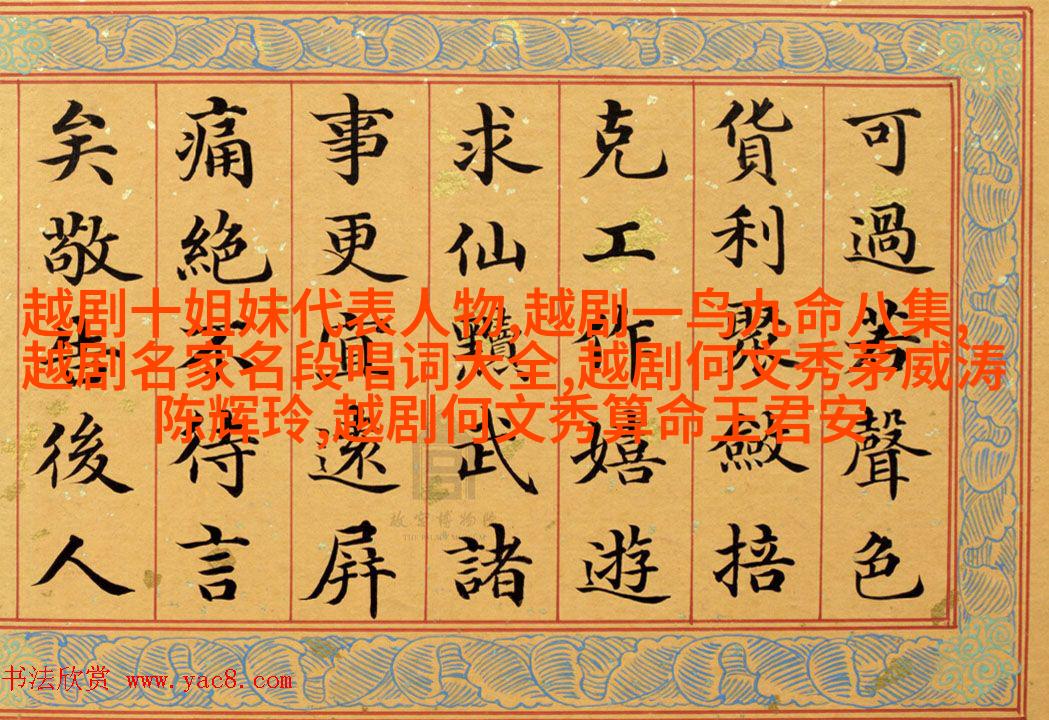 可過若聲色
貨利聚斂掊
克工作嬉遊
求仙黷武諸
事更宜遠屏
痛絕不待言
矣敬後人
越剧十姐妹代表人物,越剧一鸟九命八集,
越剧名家名段唱词大全,越剧何文秀茅威涛
陈辉玲,越剧何文秀算命王君安
故宫博物院
THE PALACE MUSEUM
书法欣赏 www.yac8.com